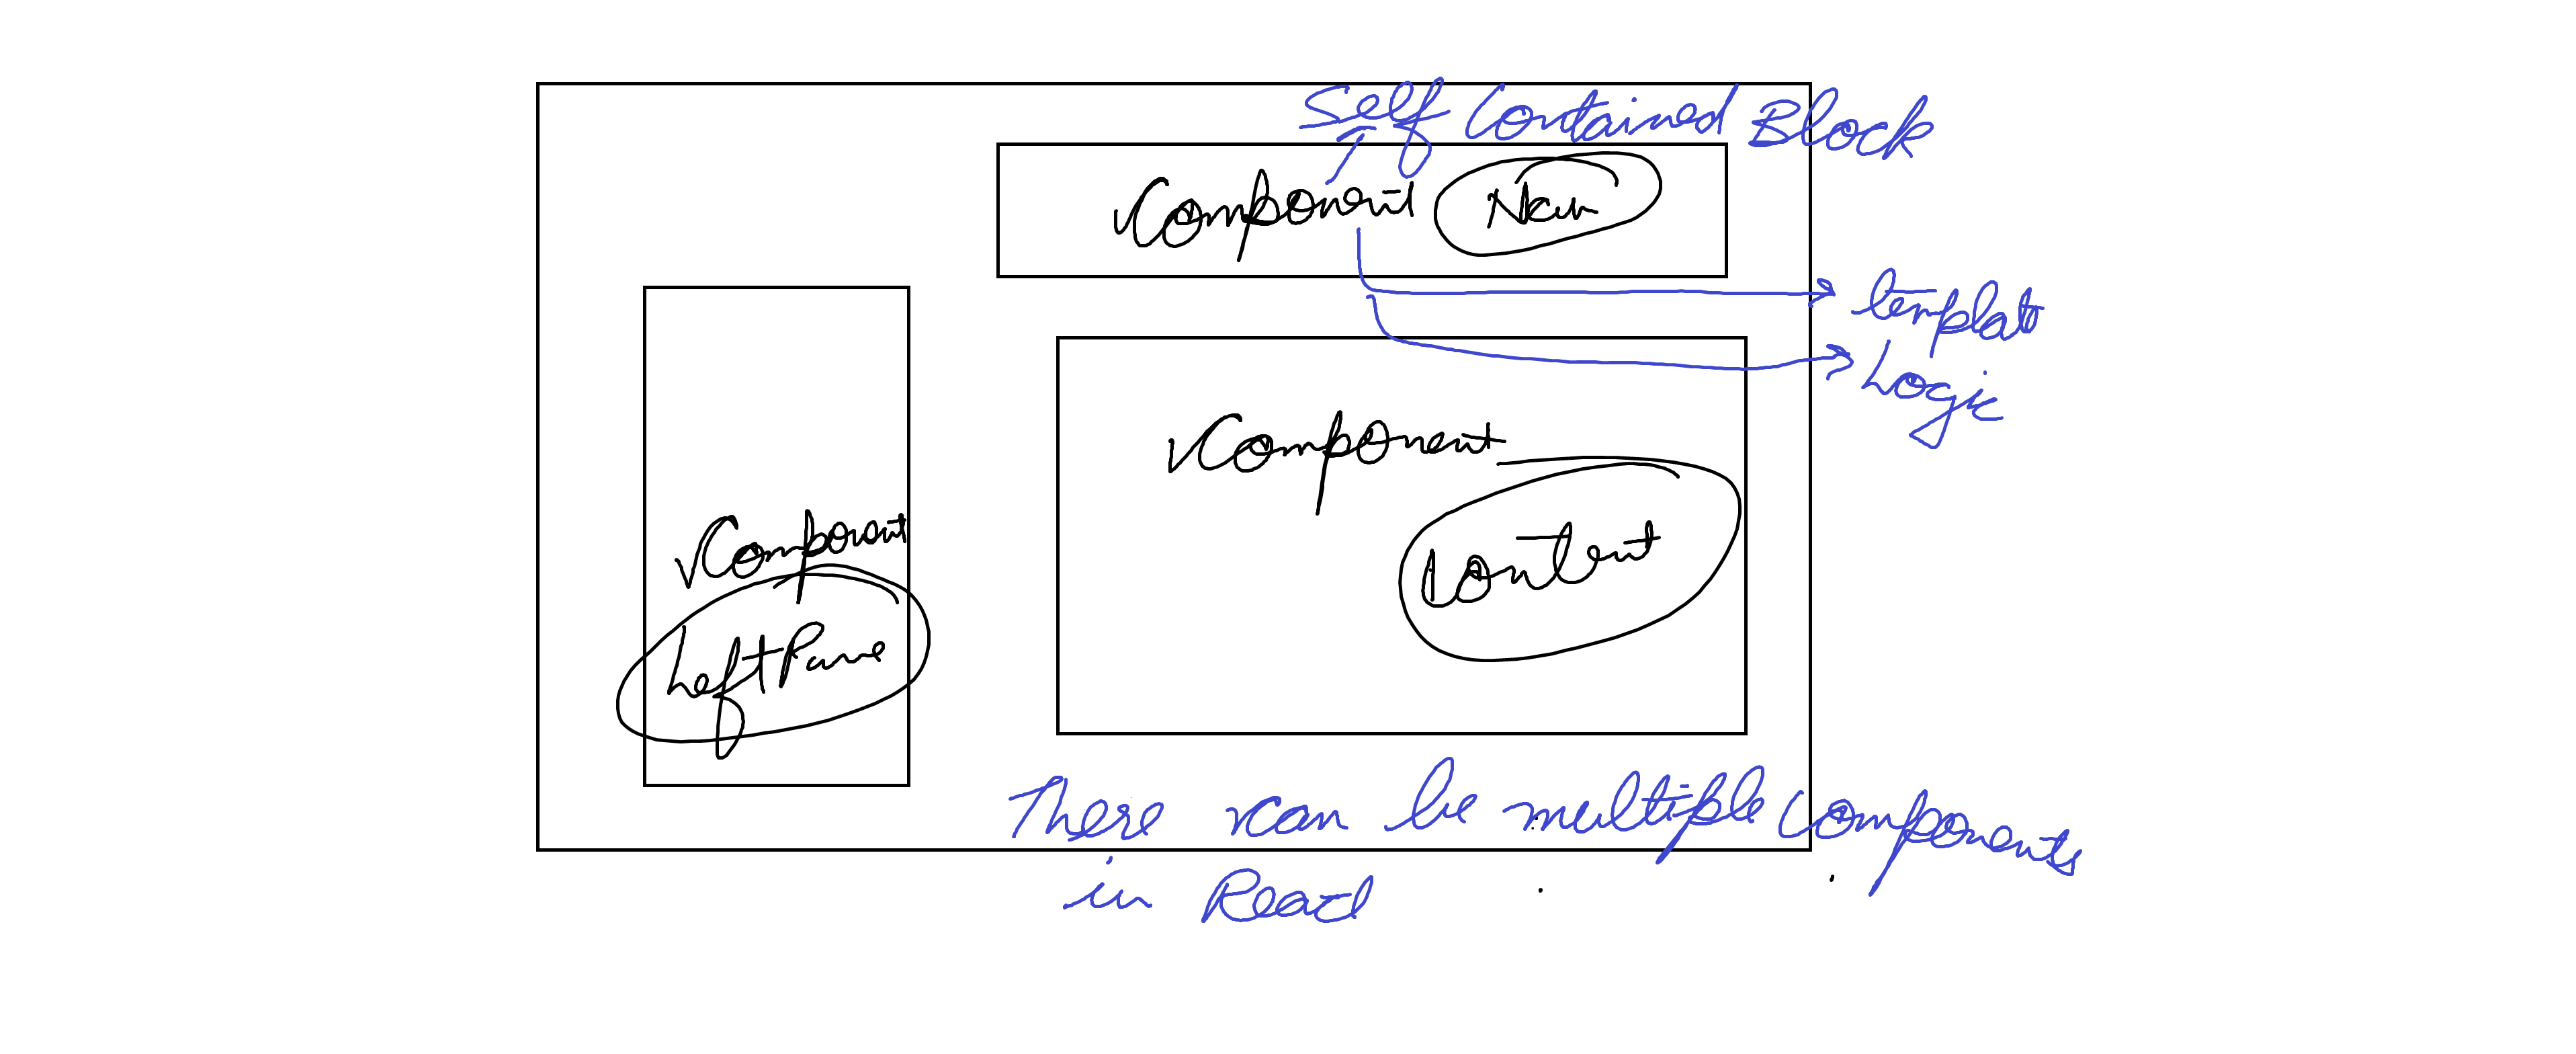 Self Contained Block
Component Nav
template
Logic
Component
Content
Component
Left Pane
There can be multiple Components
in React